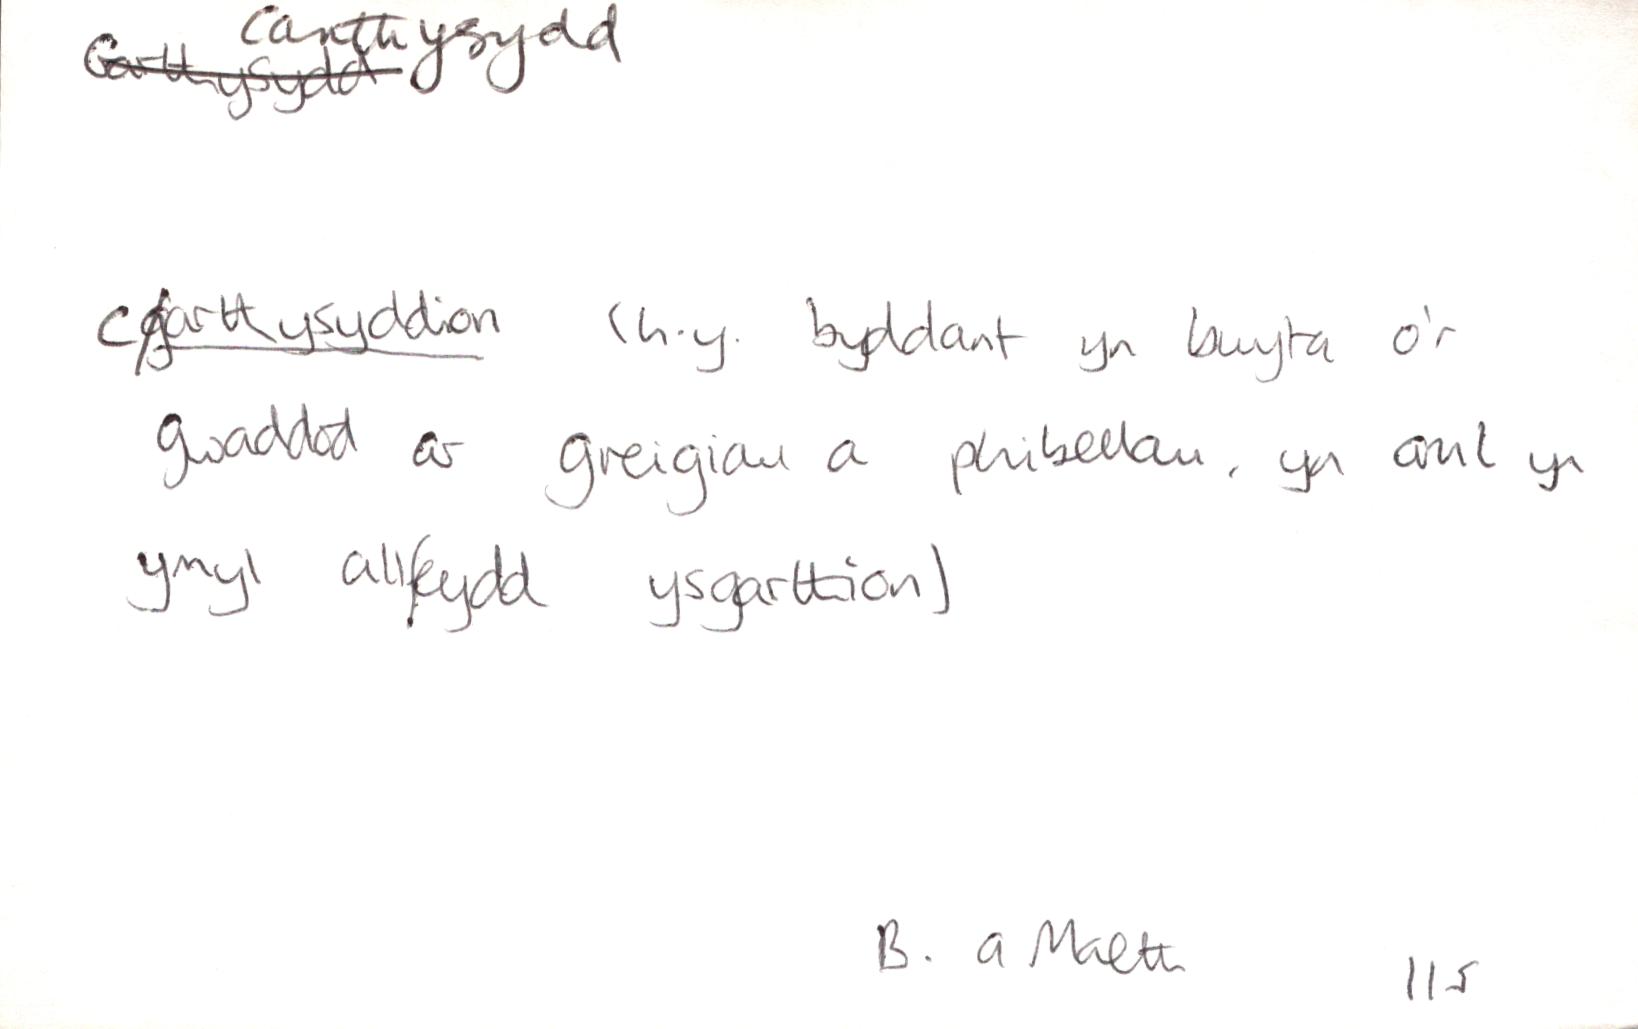 carthysydd
Garthysydd
c/garthysyddion (h.y. byddant yn bwyta o'r
gwaddod ar greigiau a phibellau, yn aml yn
ymyl allfeydd ysgarthion)
B. a Maeth 115